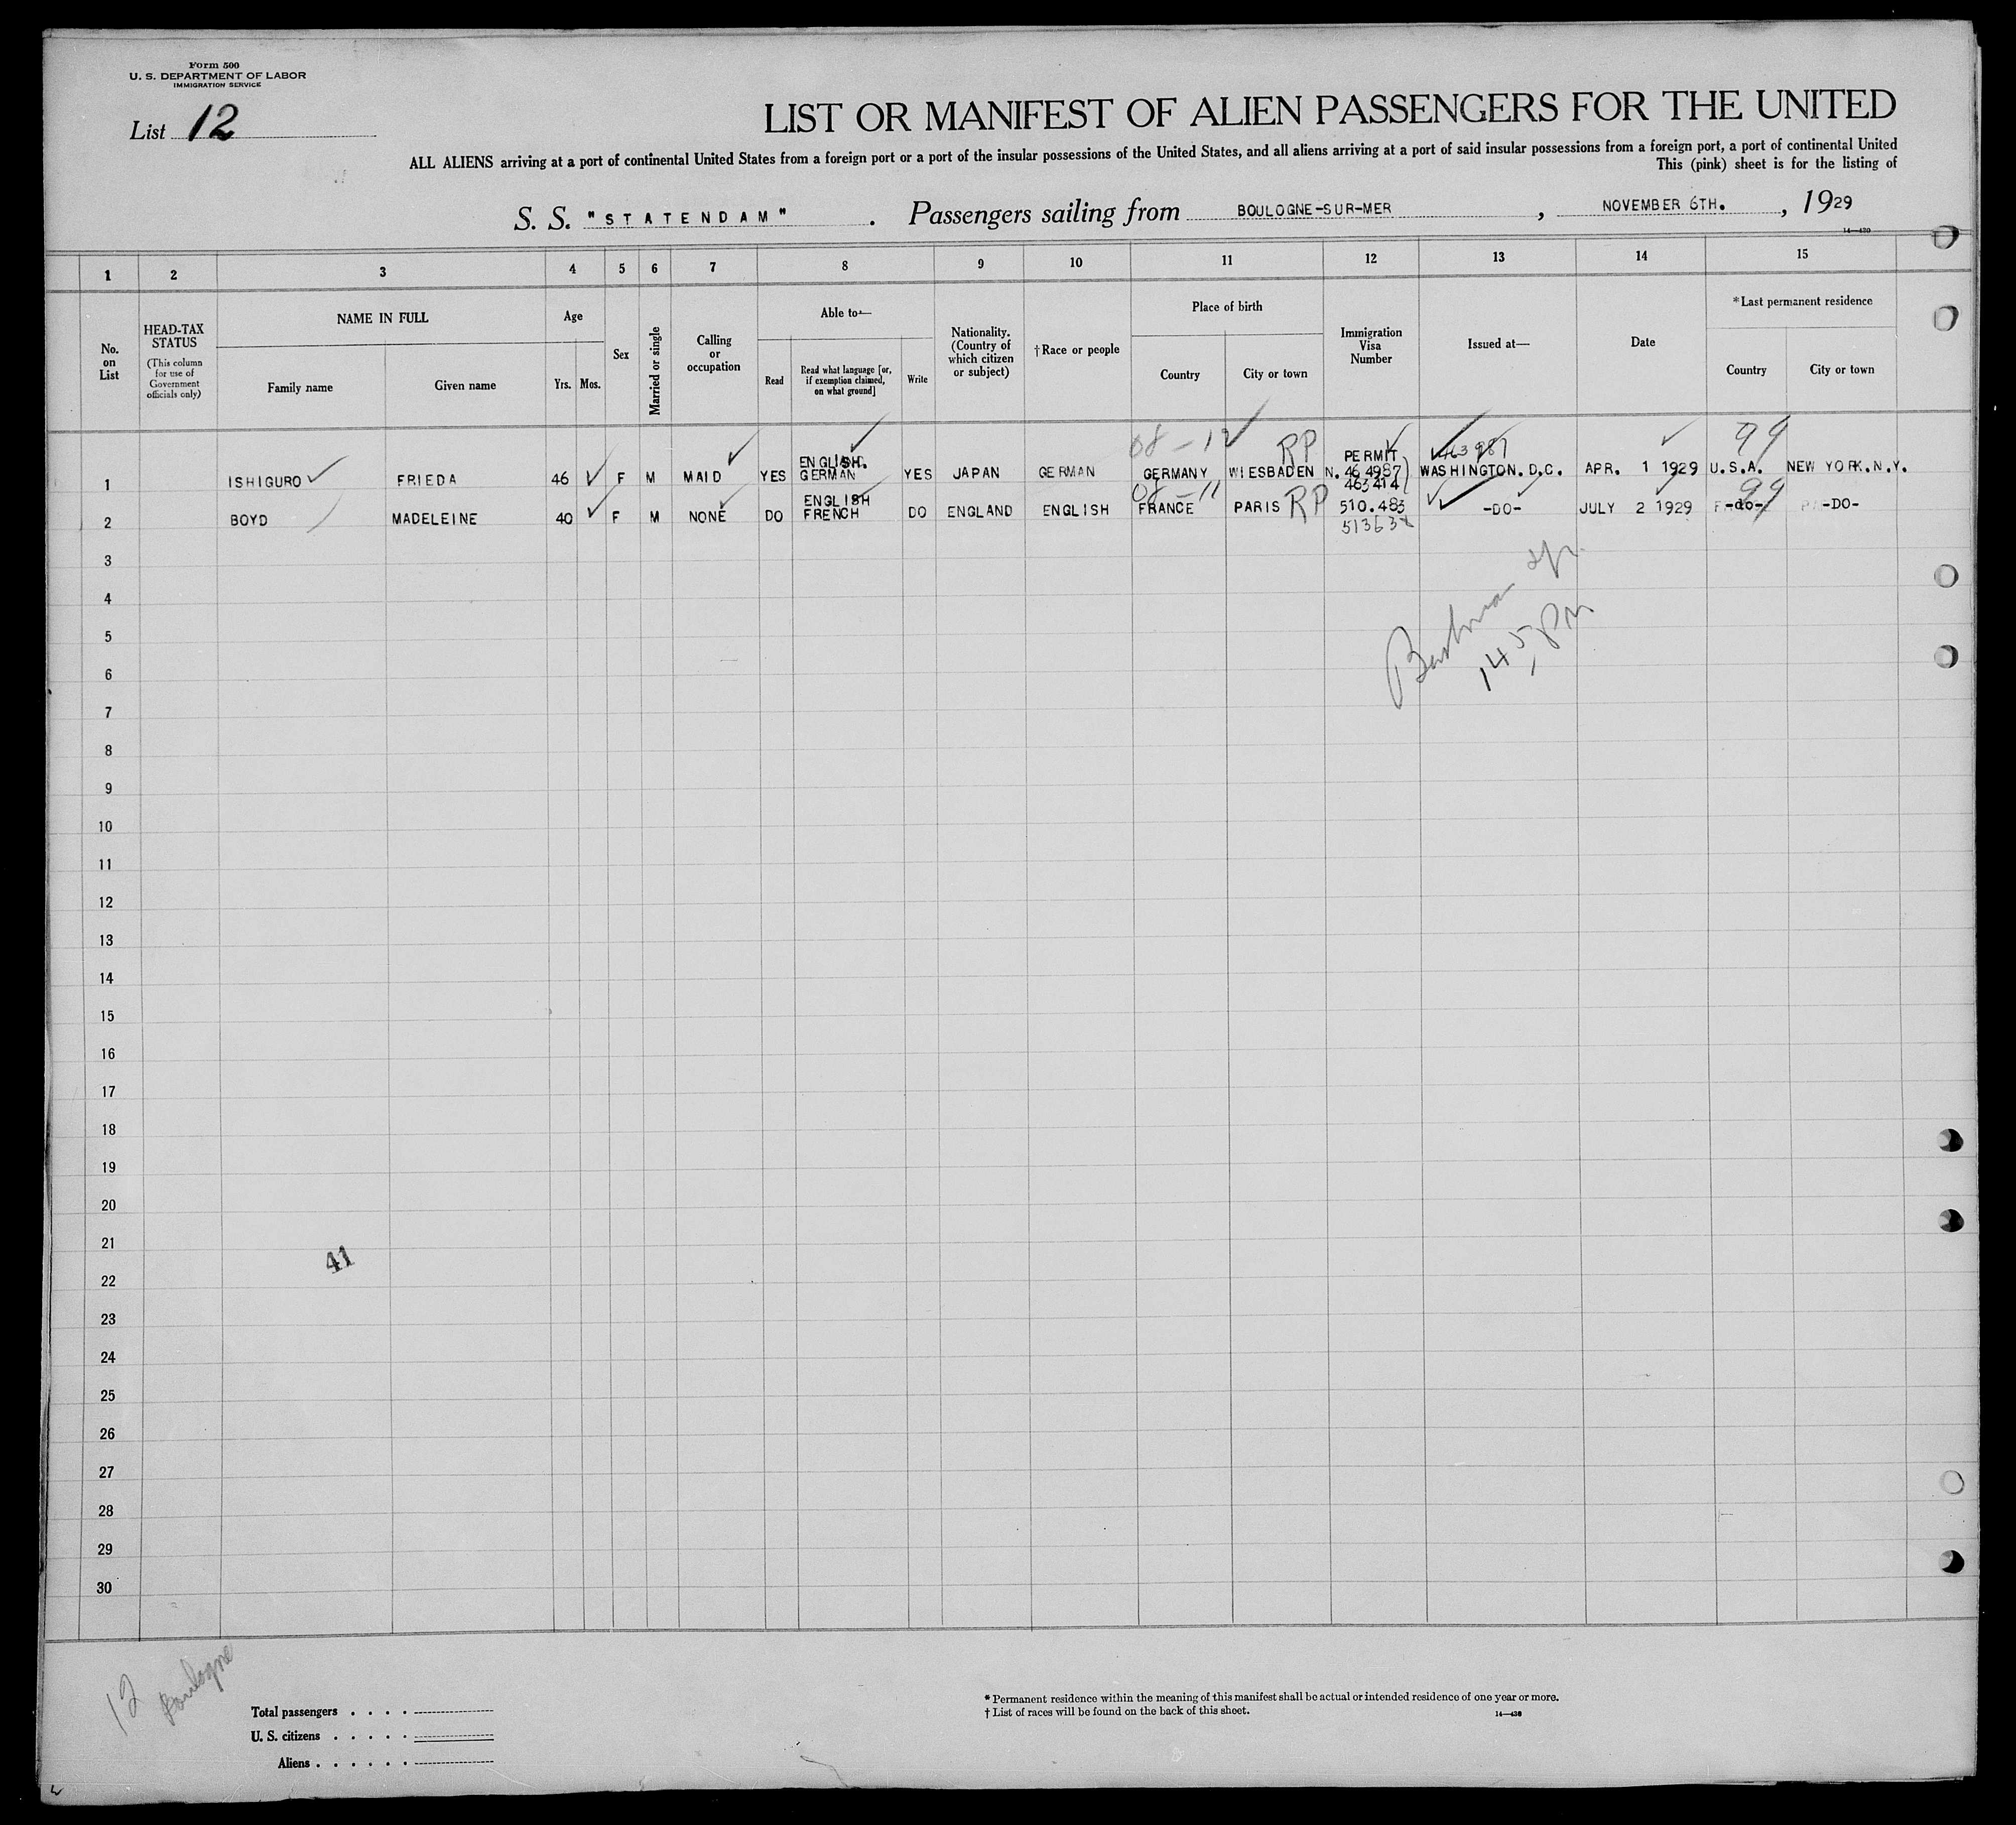 Form 500
U. S. DEPARTMENT OF LABOR
IMMIGRATION SERVICE
List 12
LIST OR MANIFEST OF ALIEN PASSENGERS FOR THE UNITED
ALL ALIENS arriving at a port of continental United States from a foreign port or a port of the insular possessions of the United States, and all aliens arriving at a port of said insular possessions from a foreign port, a port of continental United
This (pink) sheet is for the listing of
S. S. "STATENDAM". Passengers sailing from BOULOGNE-SUR-MER, NOVEMBER 6TH., 1929
14—430
1 2 3 4 5 6 7 8 9 10 11 12 13 14 15
No. on List
HEAD-TAX STATUS
(This column for use of Government officials only)
NAME IN FULL
Family name
Given name
Age
Yrs. Mos.
Sex
Married or single
Calling or occupation
Able to—
Read
Read what language [or, if exemption claimed, on what ground]
Write
Nationality. (Country of which citizen or subject)
†Race or people
Place of birth
Country
City or town
Immigration Visa Number
Issued at—
Date
*Last permanent residence
Country
City or town
08-12 RP PERMIT 463987 99
1 ISHIGURO FRIEDA 46 F M MAID YES ENGLISH. GERMAN YES JAPAN GERMAN GERMANY WIESBADEN N. 464987 WASHINGTON. D.C. APR. 1 1929 U.S.A. NEW YORK.N.Y.
463414
08-11 RP 99
2 BOYD MADELEINE 40 F M NONE DO ENGLISH FRENCH DO ENGLAND ENGLISH FRANCE PARIS 510.483 -DO- JULY 2 1929 -do- -DO-
3
4
5
6
7
8
9
10
11
12
13
14
15
16
17
18
19
20
21
41
22
23
24
25
26
27
28
29
30
12 Boulogne
Total passengers
U. S. citizens
Aliens
* Permanent residence within the meaning of this manifest shall be actual or intended residence of one year or more.
† List of races will be found on the back of this sheet.
14—430